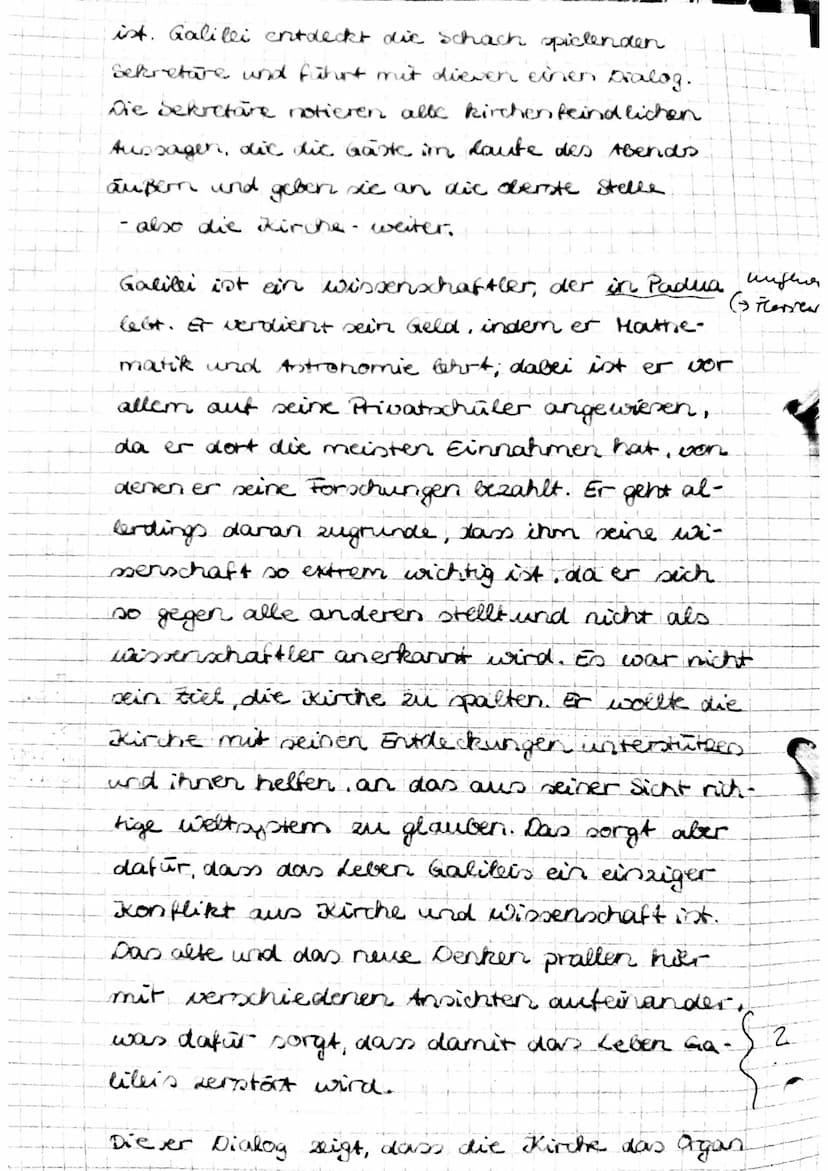 ist. Galilei entdeckt die Schach spielenden
Sekretäre und führt mit diesen einen Dialog.
Die Sekretäre notieren alle kirchenfeindlichen
Aussagen, die die Gäste im Laufe des Abends
äußern und geben sie an die oberste Stelle
- also die Kirche - weiter.
Galilei ist ein Wissenschaftler, der in Padua
lebt. Er verdient sein Geld, indem er Mathe-
matik und Astronomie lehrt; dabei ist er vor
allem auf seine Privatschüler angewiesen,
da er dort die meisten Einnahmen hat, von
denen er seine Forschungen bezahlt. Er geht al-
lerdings daran zugrunde, dass ihm seine Wi-
ssenschaft so extrem wichtig ist, da er sich
so gegen alle anderen stellt und nicht als
Wissenschaftler anerkannt wird. Es war nicht
sein Ziel, die Kirche zu spalten. Er wollte die
Kirche mit seinen Entdeckungen unterstützen
und ihnen helfen, an das aus seiner Sicht rich-
tige Weltsystem zu glauben. Das sorgt aber
dafür, dass das Leben Galileis ein einziger
Konflikt aus Kirche und Wissenschaft ist.
Das alte und das neue Denken prallen hier
mit verschiedenen Ansichten aufeinander,
was dafür sorgt, dass damit das Leben Ga-
lileis zerstört wird.
2
Dieser Dialog zeigt, dass die Kirche das Organ